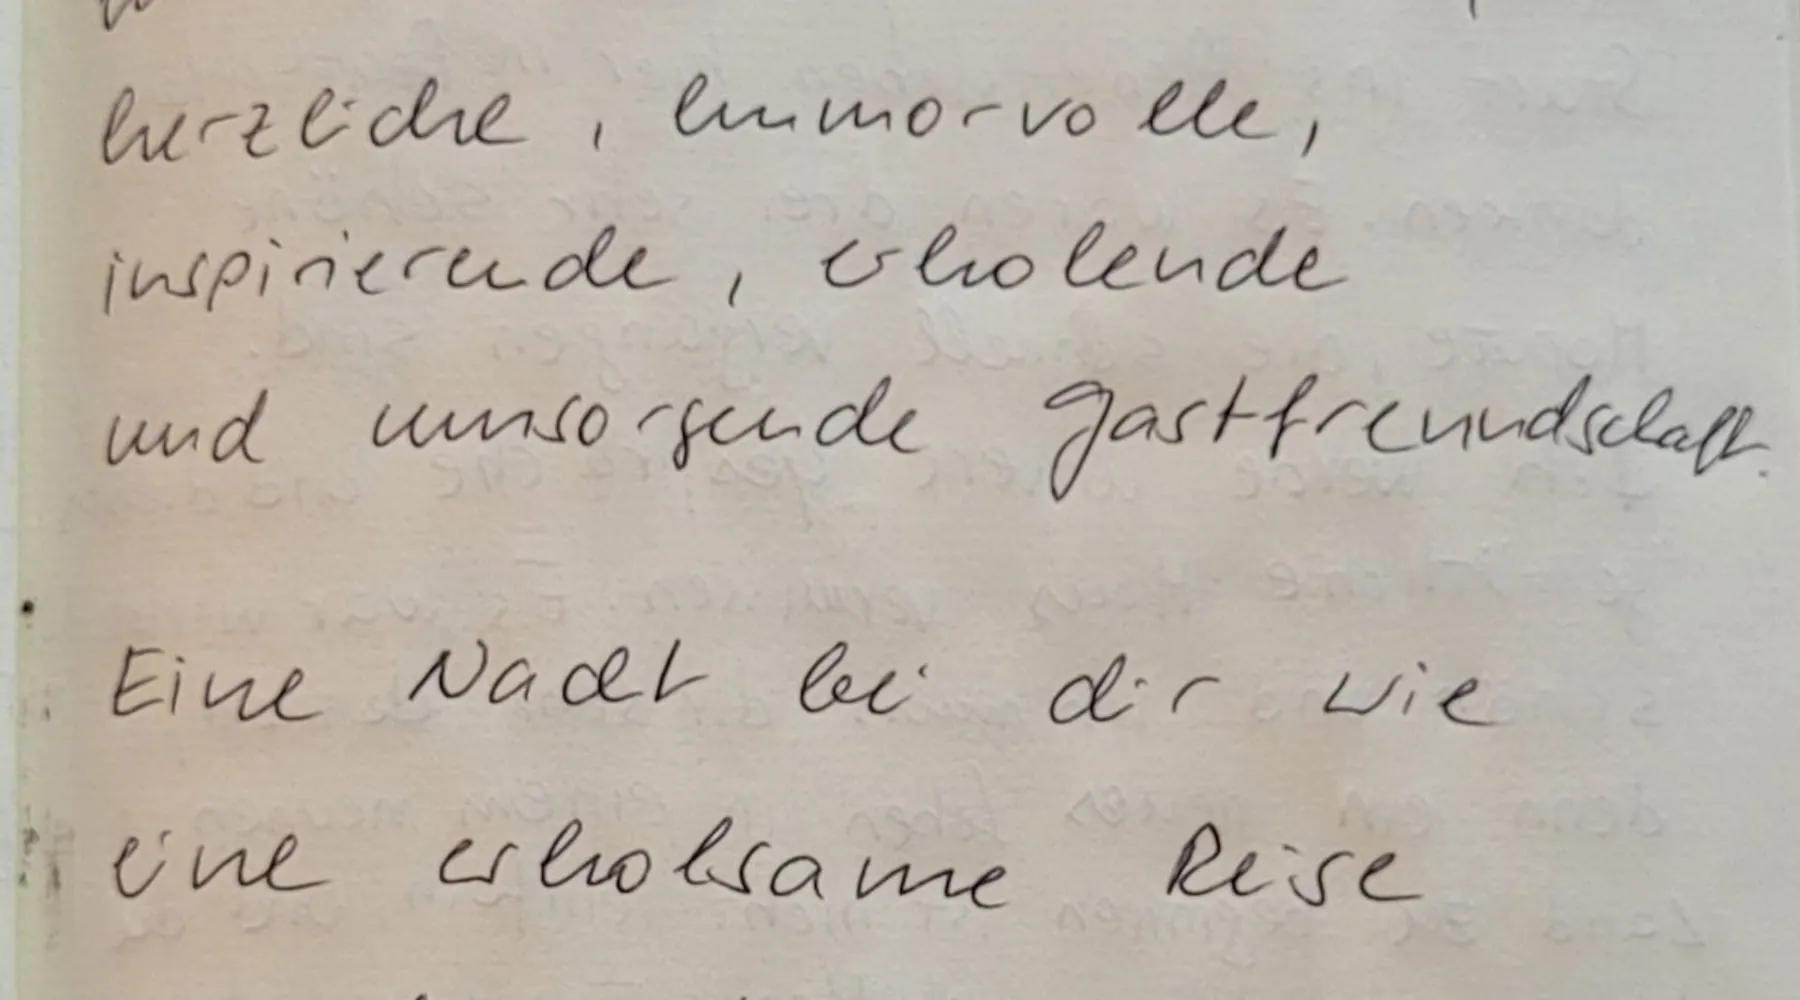 herzliche, humorvolle,
inspirierende, erholende
und umsorgende Gastfreundschaft.
Eine Nacht bei dir wie
eine erholsame Reise